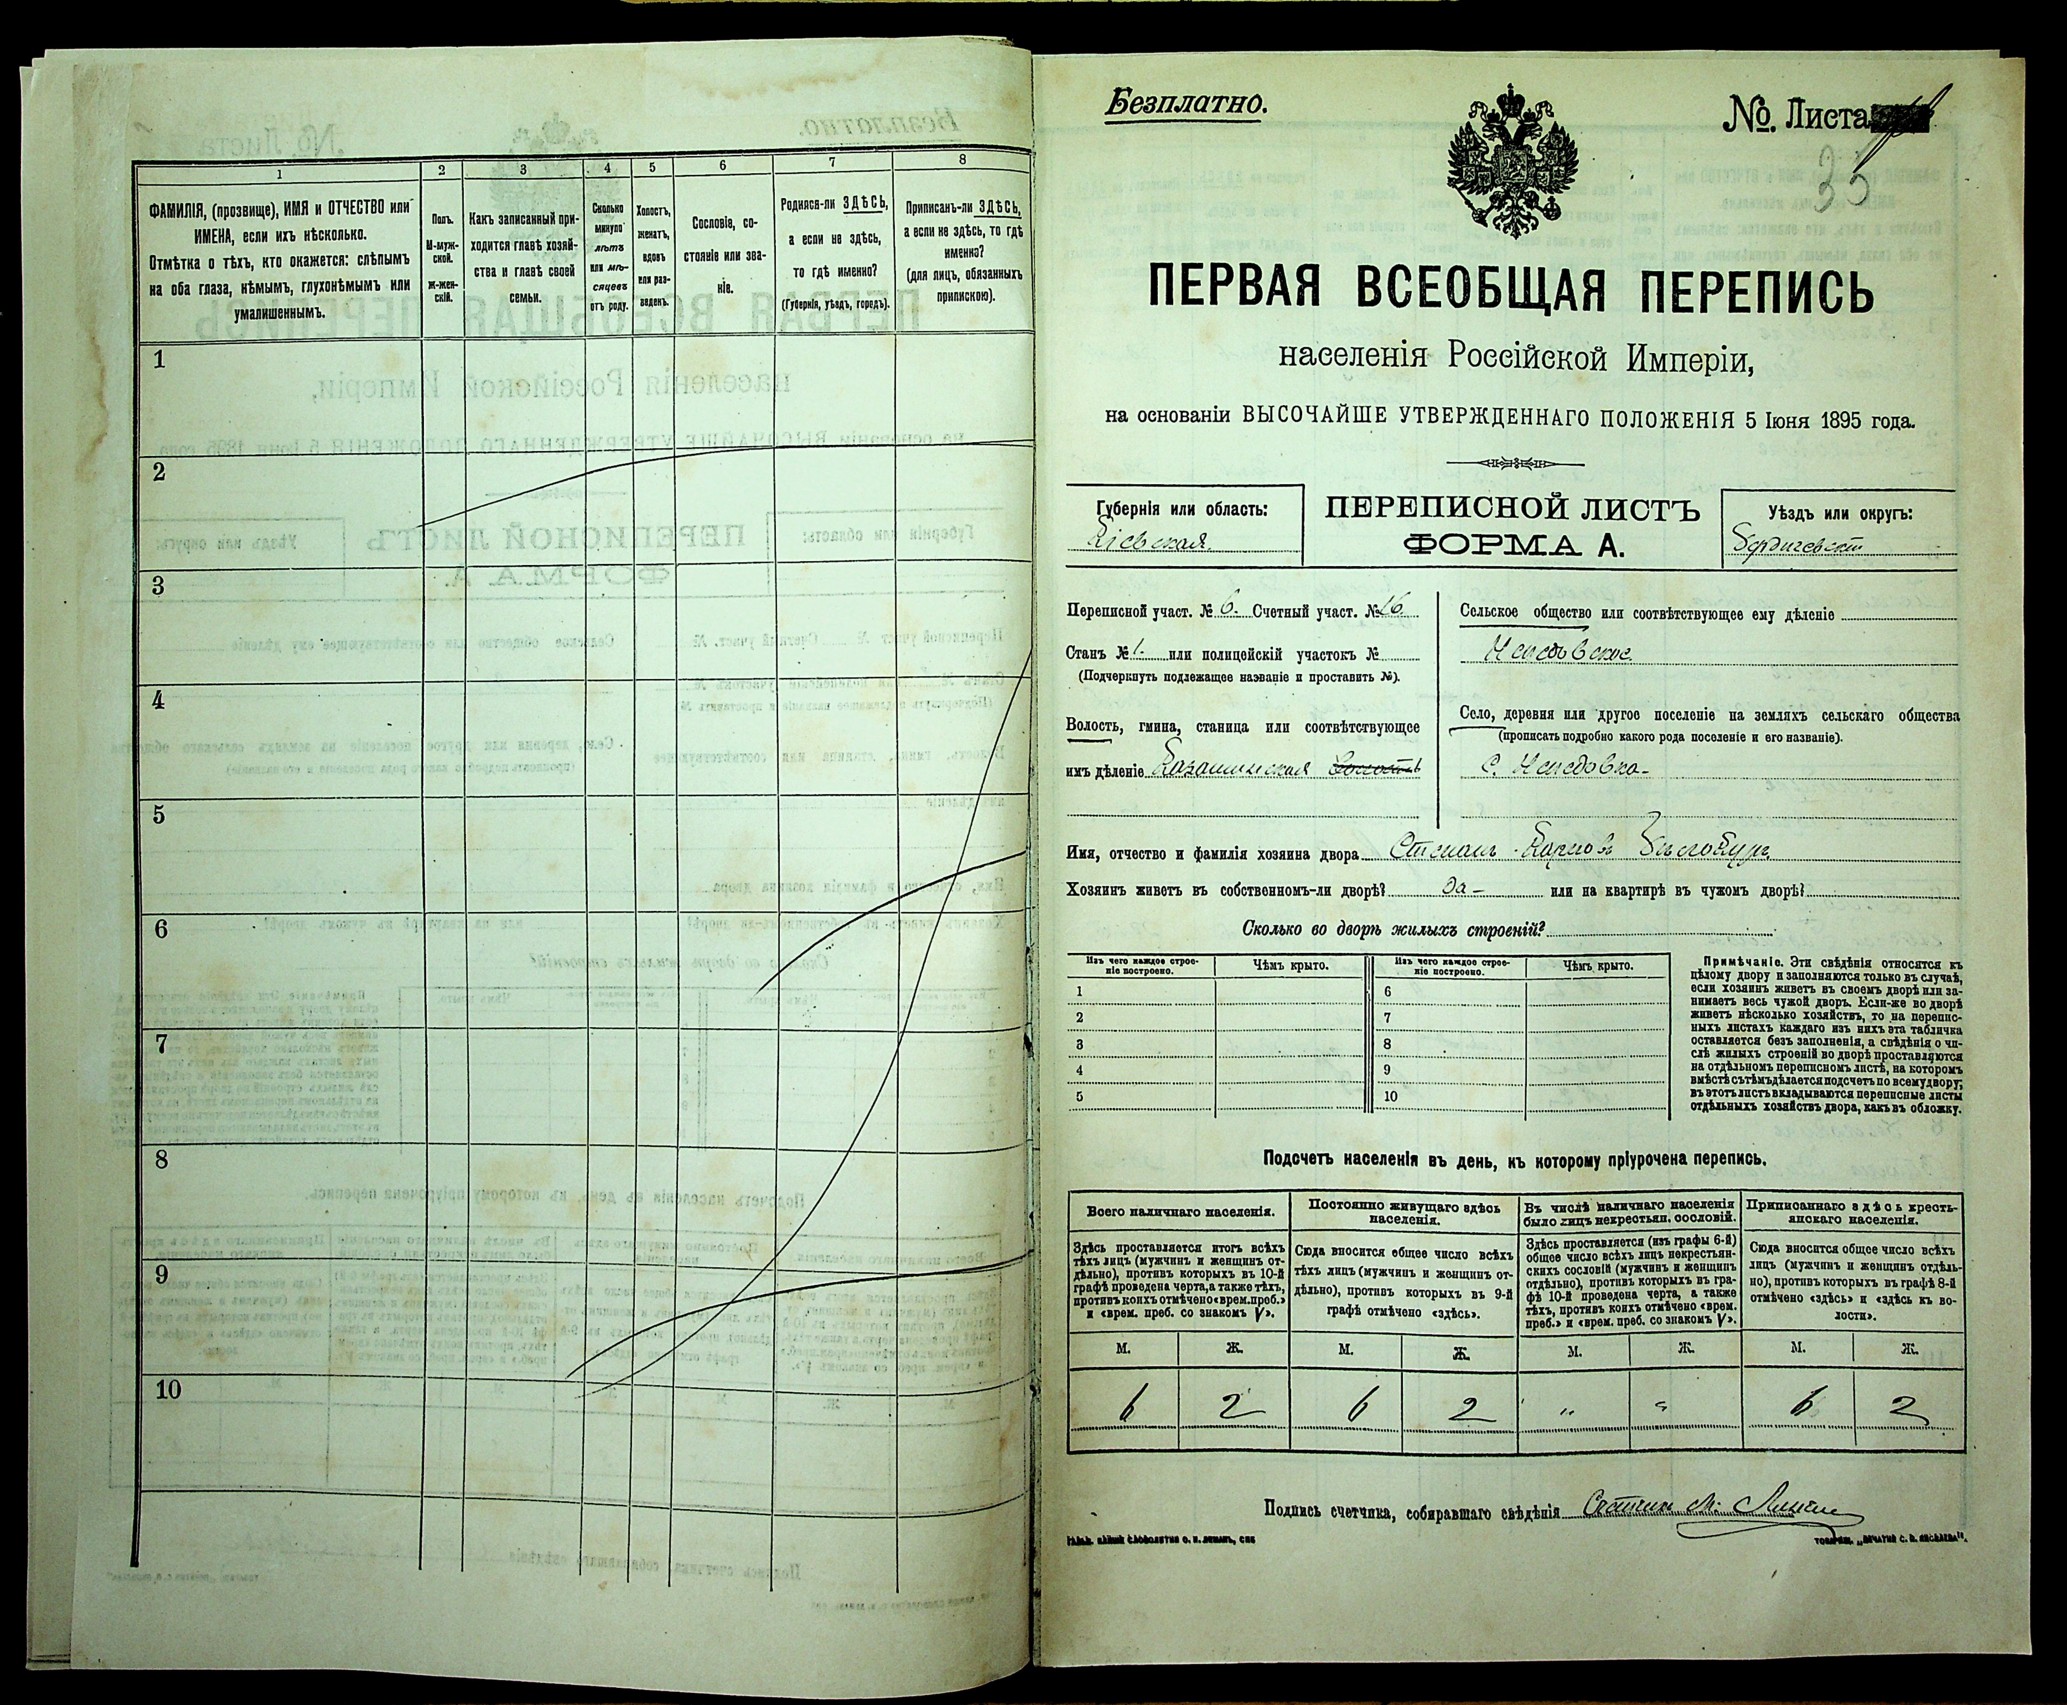 1
2
3
4
5
6
7
8
ФАМИЛІЯ, (прозвище), ИМЯ и ОТЧЕСТВО или
ИМЕНА, если ихъ нѣсколько.
Отмѣтка о тѣхъ, кто окажется: слѣпымъ
на оба глаза, нѣмымъ, глухонѣмымъ или
умалишеннымъ.
Полъ.
М-муж-
ской.
Ж-жен-
скій.
Какъ записанный при-
ходится главѣ хозяй-
ства и главѣ своей
семьи.
Сколько
минуло
лѣтъ
или мѣ-
сяцевъ
отъ роду.
Холостъ,
женатъ,
вдовъ
или раз-
веденъ.
Сословіе, со-
стояніе или зва-
ніе.
Родился-ли ЗДѢСЬ,
а если не здѣсь,
то гдѣ именно?
(Губернія, уѣздъ, городъ).
Приписанъ-ли ЗДѢСЬ,
а если не здѣсь, то гдѣ
именно?
(для лицъ, обязанныхъ
припискою).
1
2
3
4
5
6
7
8
9
10
Безплатно.
№. Листа
35
ПЕРВАЯ ВСЕОБЩАЯ ПЕРЕПИСЬ
населенія Россійской Имперіи,
на основаніи ВЫСОЧАЙШЕ УТВЕРЖДЕННАГО ПОЛОЖЕНІЯ 5 Іюня 1895 года.
Губернія или область:
Кіевская.
ПЕРЕПИСНОЙ ЛИСТЪ
ФОРМА А.
Уѣздъ или округъ:
Бердичевскій
Переписной участ. № 6. Счетный участ. № 16.
Станъ № 1. или полицейскій участокъ №
(Подчеркнуть подлежащее названіе и проставить №).
Волость, гмина, станица или соотвѣтствующее
имъ дѣленіе Казатинская волость
Сельское общество или соотвѣтствующее ему дѣленіе
Непедовское
Село, деревня или другое поселеніе на земляхъ сельскаго общества
(прописать подробно какого рода поселеніе и его названіе).
С. Непедовка
Имя, отчество и фамилія хозяина двора Степанъ Карповъ
Хозяинъ живетъ въ собственномъ-ли дворѣ? да или на квартирѣ въ чужомъ дворѣ?
Сколько во дворѣ жилыхъ строеній?
Изъ чего каждое строе-
ніе построено.
Чѣмъ крыто.
Изъ чего каждое строе-
ніе построено.
Чѣмъ крыто.
1
6
2
7
3
8
4
9
5
10
Примѣчаніе. Эти свѣдѣнія относятся къ
цѣлому двору и заполняются только въ случаѣ,
если хозяинъ живетъ въ своемъ дворѣ или за-
нимаетъ весь чужой дворъ. Если-же во дворѣ
живетъ нѣсколько хозяйствъ, то на перепис-
ныхъ листахъ каждаго изъ нихъ эта табличка
оставляется безъ заполненія, а свѣдѣнія о чи-
слѣ жилыхъ строеній во дворѣ проставляются
на отдѣльномъ переписномъ листѣ, на которомъ
вмѣстѣ съ тѣмъ дѣлается подсчетъ по всему двору;
въ этотъ листъ вкладываются переписные листы
отдѣльныхъ хозяйствъ двора, какъ въ обложку.
Подсчетъ населенія въ день, къ которому пріурочена перепись.
Всего наличнаго населенія.
Постоянно живущаго здѣсь
населенія.
Въ числѣ наличнаго населенія
было лицъ некрестьян. сословій.
Приписаннаго здѣсь кресть-
янскаго населенія.
Здѣсь проставляется итогъ всѣхъ
тѣхъ лицъ (мужчинъ и женщинъ от-
дѣльно), противъ которыхъ въ 10-й
графѣ проведена черта, а также тѣхъ,
противъ коихъ отмѣчено «врем. преб.»
и «врем. преб. со знакомъ V».
Сюда вносится общее число всѣхъ
тѣхъ лицъ (мужчинъ и женщинъ от-
дѣльно), противъ которыхъ въ 9-й
графѣ отмѣчено «здѣсь».
Здѣсь проставляется (изъ графы 6-й)
общее число всѣхъ лицъ некрестьян-
скихъ сословій (мужчинъ и женщинъ
отдѣльно), противъ которыхъ въ гра-
фѣ 10-й проведена черта, а также
тѣхъ, противъ коихъ отмѣчено «врем.
преб.» и «врем. преб. со знакомъ V».
Сюда вносится общее число всѣхъ
лицъ (мужчинъ и женщинъ отдѣль-
но), противъ которыхъ въ графѣ 8-й
отмѣчено «здѣсь» и «здѣсь къ во-
лости».
М. Ж. М. Ж. М. Ж. М. Ж.
6 2 6 2 „ „ 6 2
Подпись счетчика, собиравшаго свѣдѣнія Счетчикъ М.